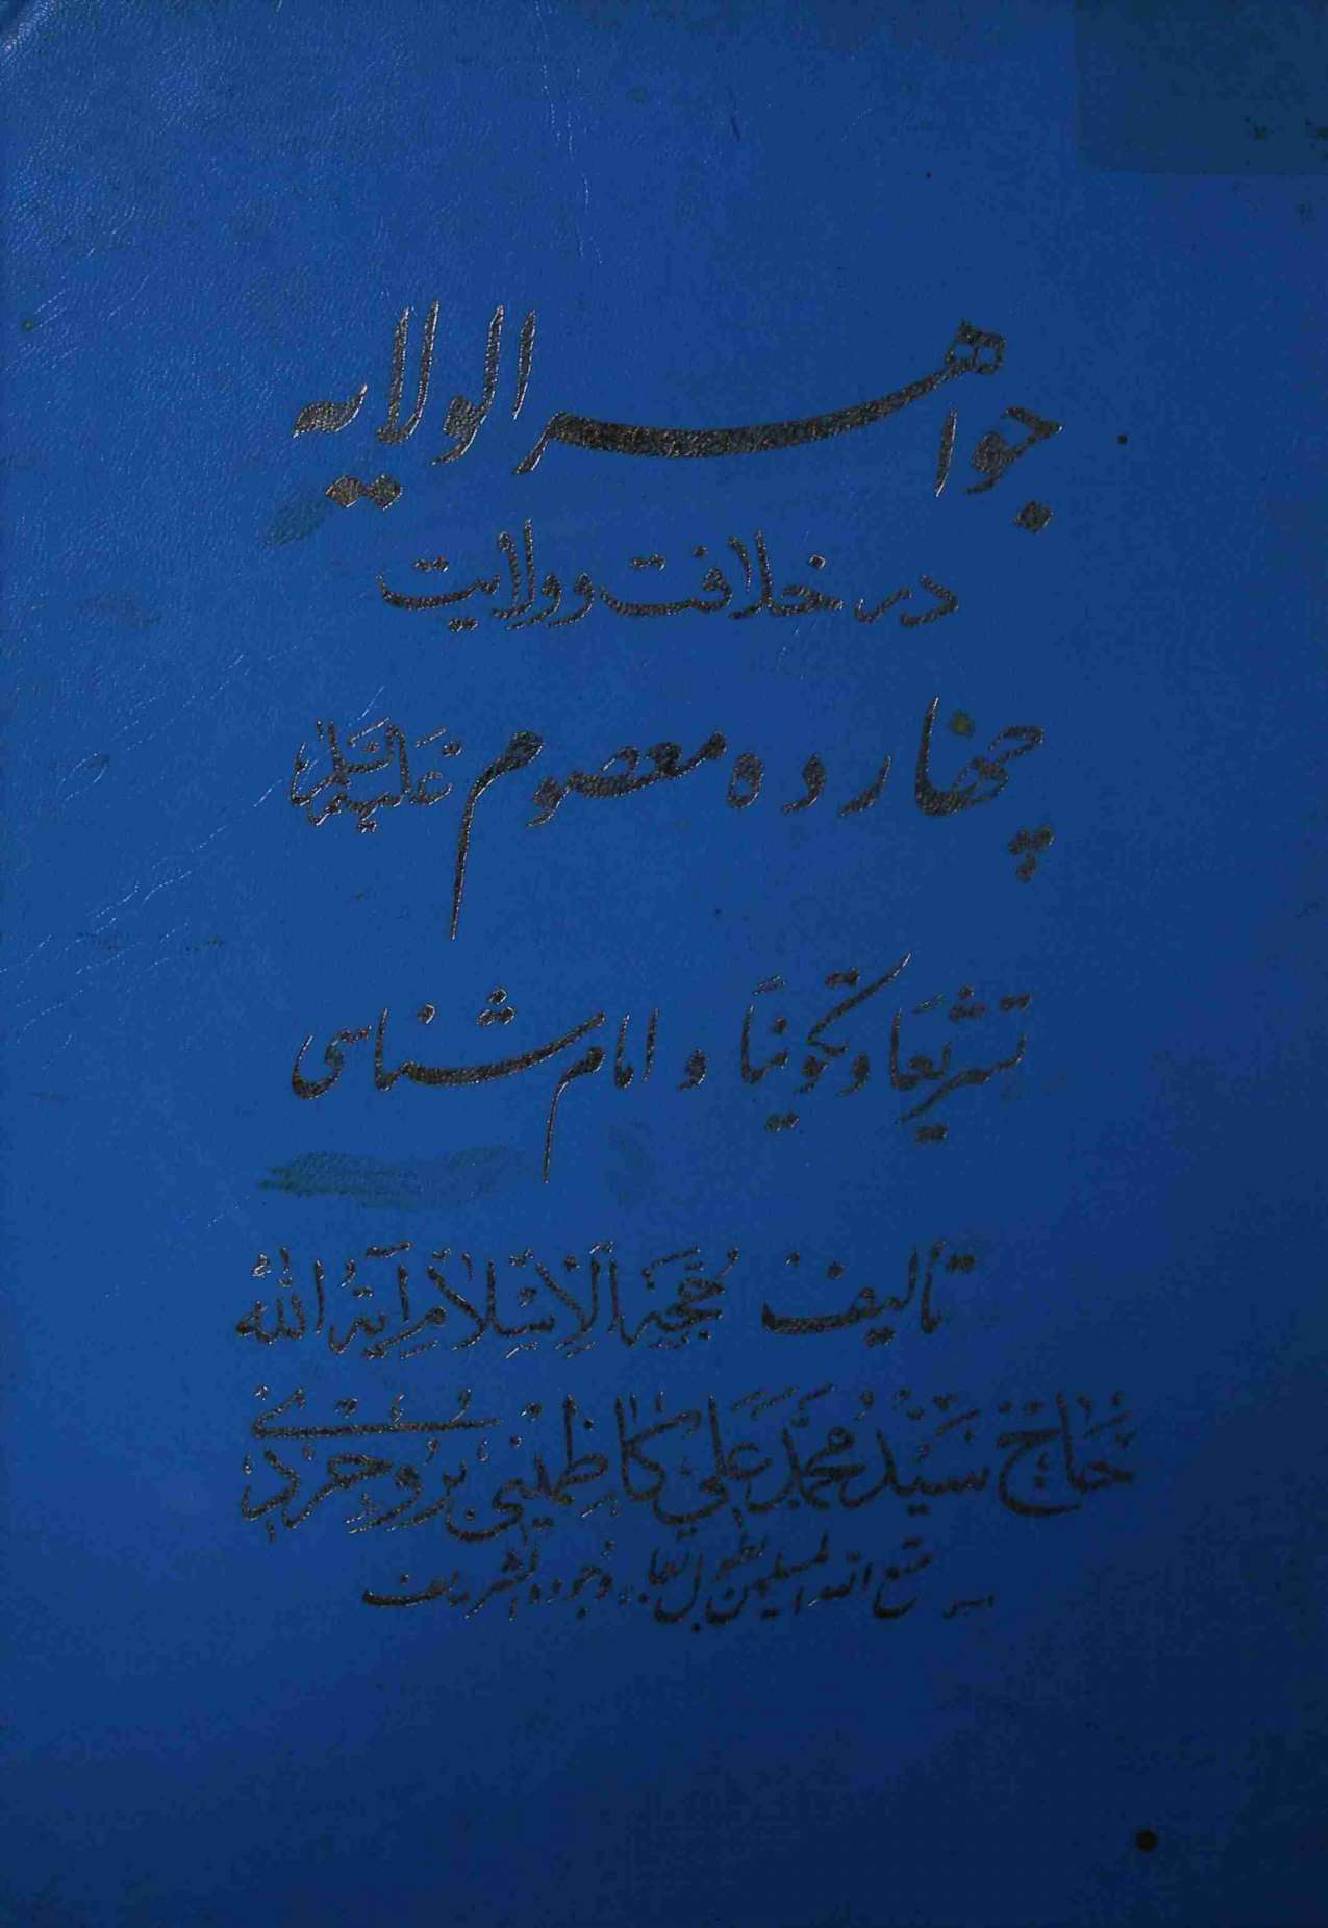 جواهر الولایه
در خلافت و ولایت
چهارده معصوم علیهم السلام
تشریعا و تکوینا و امام شناسی
تألیف حُجَّةُ الْاِسْلامِ آیَةُ اللّٰهُ
حٰاج سَیِّدْ مُحَمَّدْ عَلی کٰاظِمَیْنی بُرُوجِرْدی
متع الله المسلمین بطول بقاء وجوده الشریف